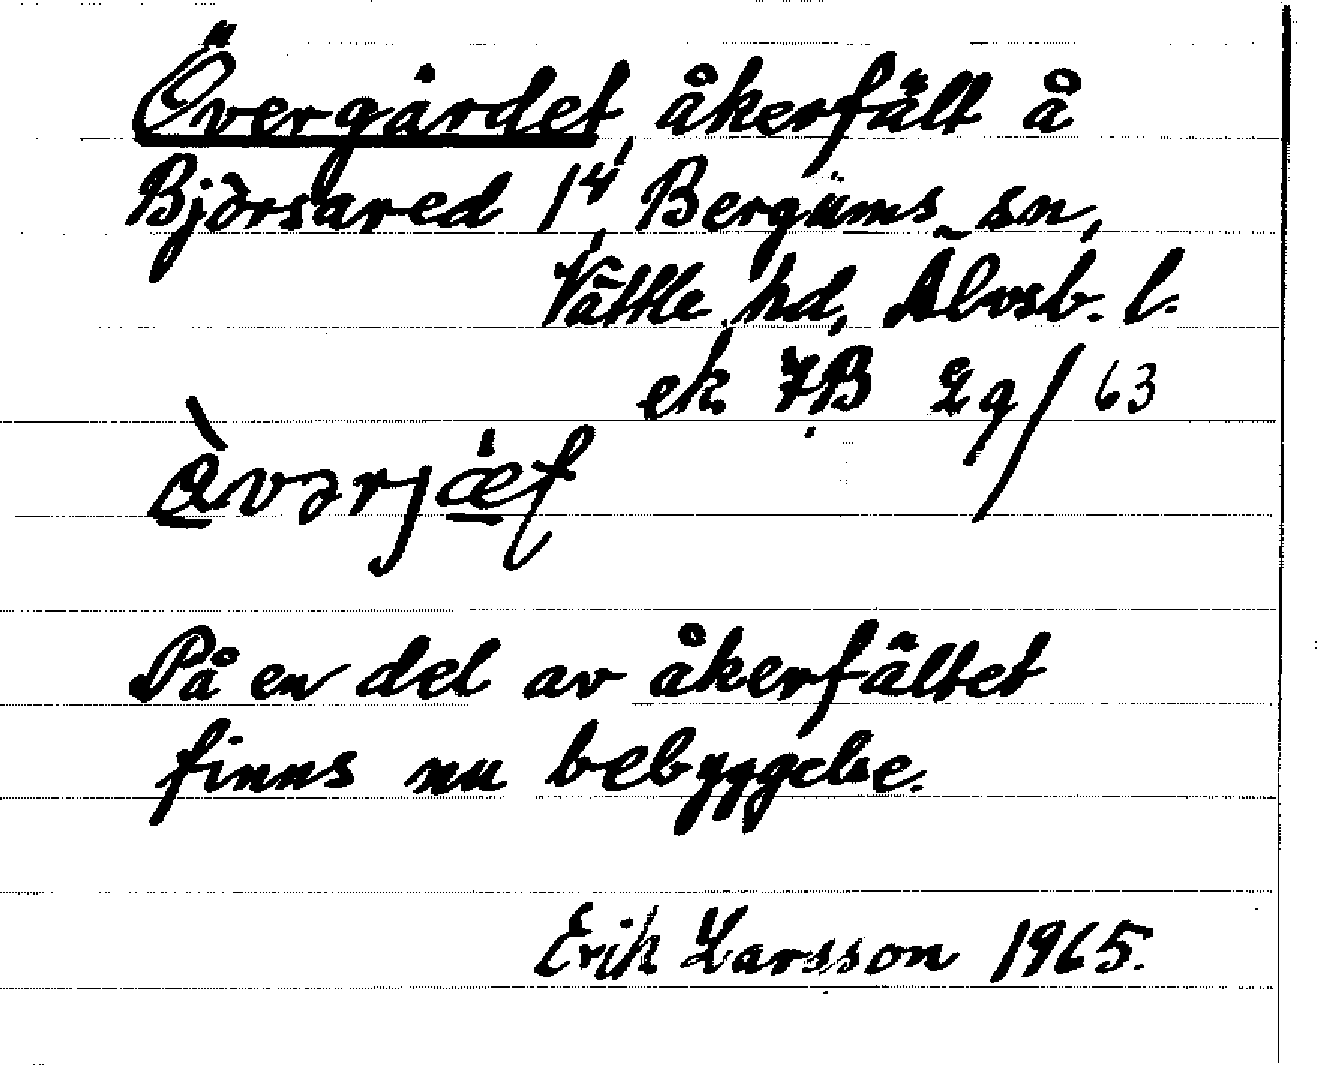 Övergärdet, åkerfält å
Björsared 1⁴, Bergums sn,
Vättle hd, Älvsb. l.
ek 7B 2g/63
På en del av åkerfältet
finns nu bebyggelse.
Erik Larsson 1965.